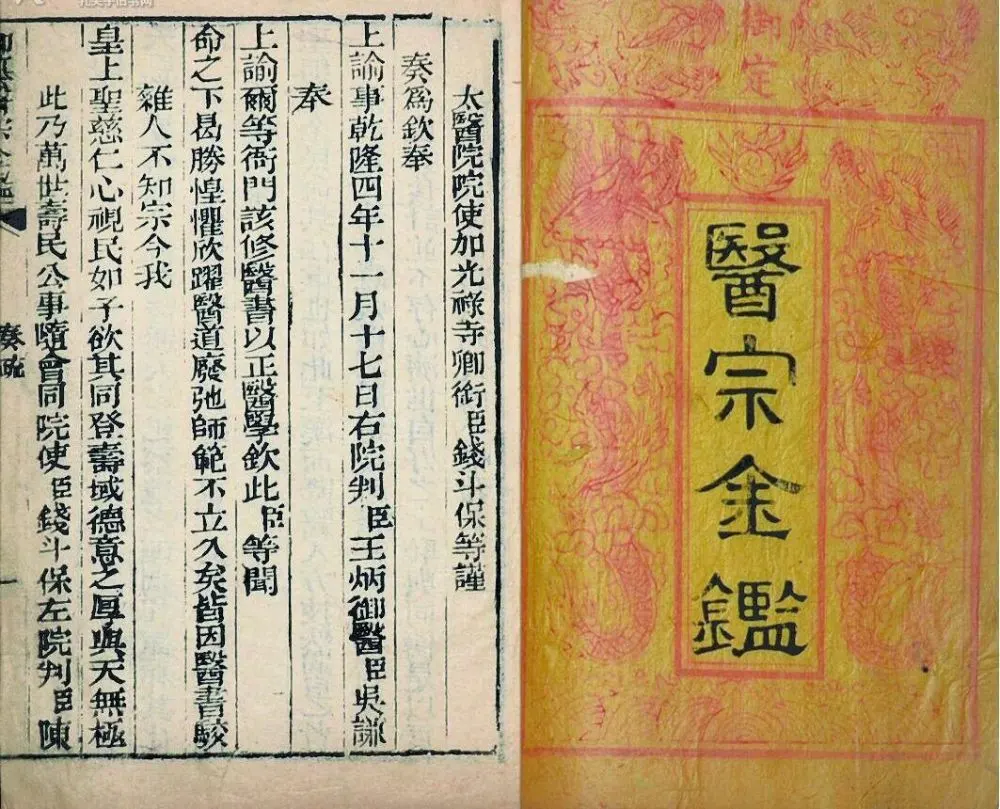 御定
醫宗金鑑
太醫院院使加光祿寺卿銜臣錢斗保等謹
奏爲欽奉
上諭事乾隆四年十一月十七日右院判臣王炳御醫臣吳謙
奉
上諭爾等衙門該修醫書以正醫學欽此臣等聞
命之下曷勝惶懼欣躍醫道廢弛師範不立久矣皆因醫書駁
雜人不知宗今我
皇上聖慈仁心視民如子欲其同登壽域德意之厚與天無極
此乃萬世壽民公事隨會同院使臣錢斗保左院判臣陳
奏疏
一